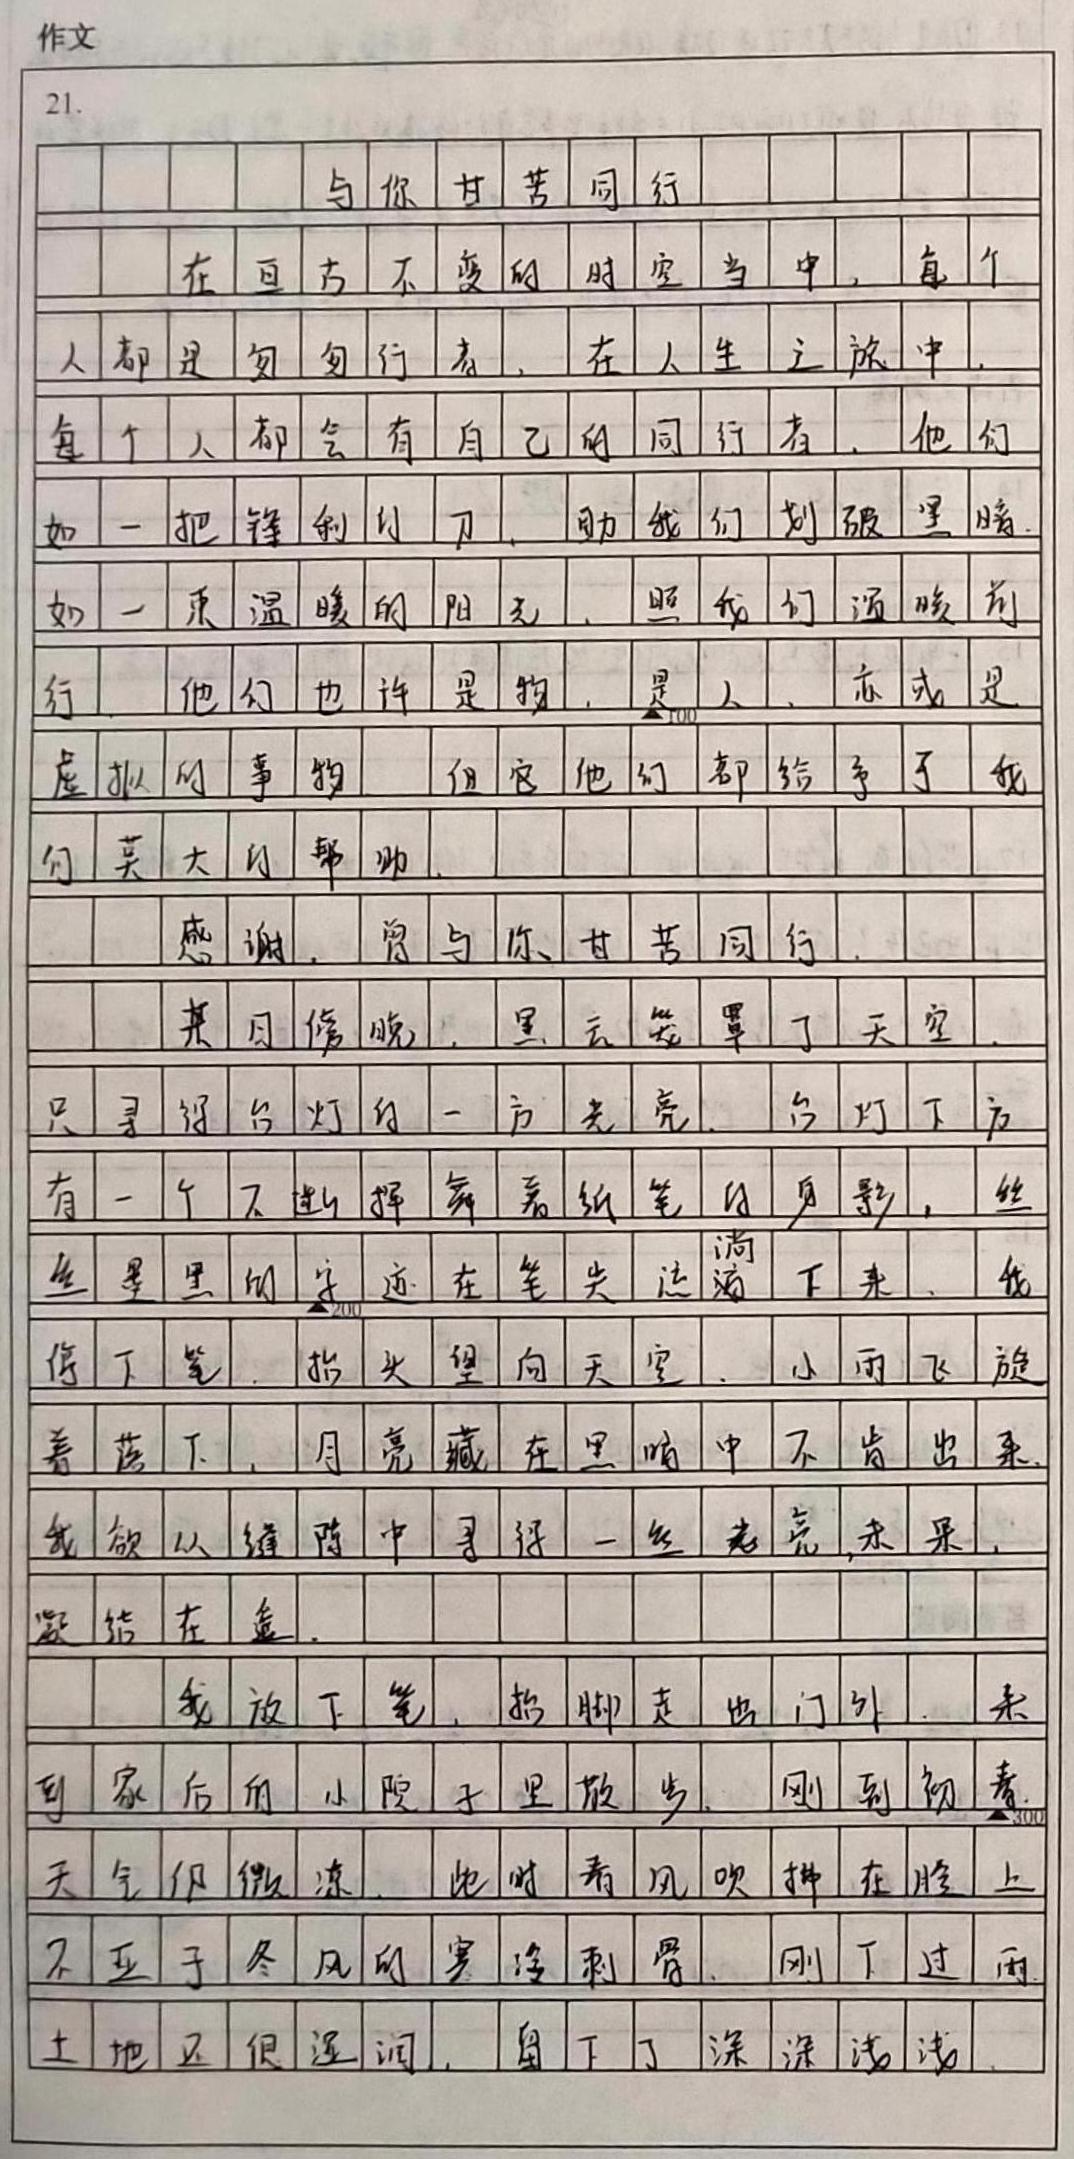 作文
21.
与你甘苦同行
在亘古不变的时空当中,每个
人都是匆匆行者,在人生之旅中,
每个人都会有自己的同行者,他们
如一把锋利的刀,助我们划破黑暗.
如一束温暖的阳光,照我们温暖前
行.他们也许是物,是人,亦或是
▲100
虚拟的事物 但它他们都给予了我
们莫大的帮助.
感谢,曾与你甘苦同行.
某日傍晚,黑云笼罩了天空,
只寻得台灯的一方光亮.台灯下方
有一个不断挥舞着纸笔的身影,丝
丝墨黑的字迹在笔尖流淌下来.我
▲200
停下笔,抬头望向天空,小雨飞旋
着落下,月亮藏在黑暗中不肯出来.
我欲从缝隙中寻得一丝光亮,未果,
凝结在盒.
我放下笔,抬脚走出门外,来
到家后的小院子里散步.刚到初春.
▲300
天气仍微凉.此时春风吹拂在脸上
不亚于冬风的寒冷刺骨.刚下过雨.
土地还很湿润,留下了深深浅浅